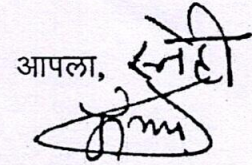 आपला, स्नेही